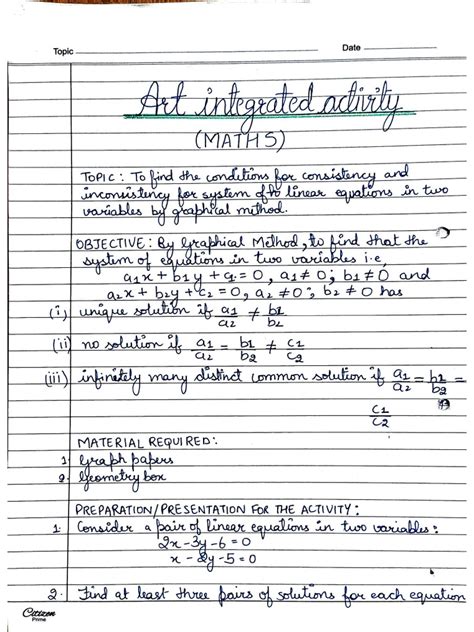 Topic Date
Art integrated activity
(MATHS)
TOPIC : To find the conditions for consistency and
inconsistency for system of to linear equations in two
variables by graphical method.
OBJECTIVE : By Graphical Method, to find that the
system of equations in two variables i.e,
a1x + b1y + c1 = 0, a1 ≠ 0 ; b1 ≠ 0 and
a2x + b2y + c2 = 0, a2 ≠ 0 ; b2 ≠ 0 has
(i) unique solution if a1/a2 ≠ b1/b2
(ii) no solution if a1/a2 = b1/b2 ≠ c1/c2
(iii) infinitely many distinct common solution if a1/a2 = b1/b2 =
c1/c2
MATERIAL REQUIRED :
1. Graph papers
2. Geometry box
PREPARATION/PRESENTATION FOR THE ACTIVITY :
1. Consider a pair of linear equations in two variables :
2x - 3y - 6 = 0
x - 2y - 5 = 0
2. Find at least three pairs of solutions for each equation
Citizen
Prime